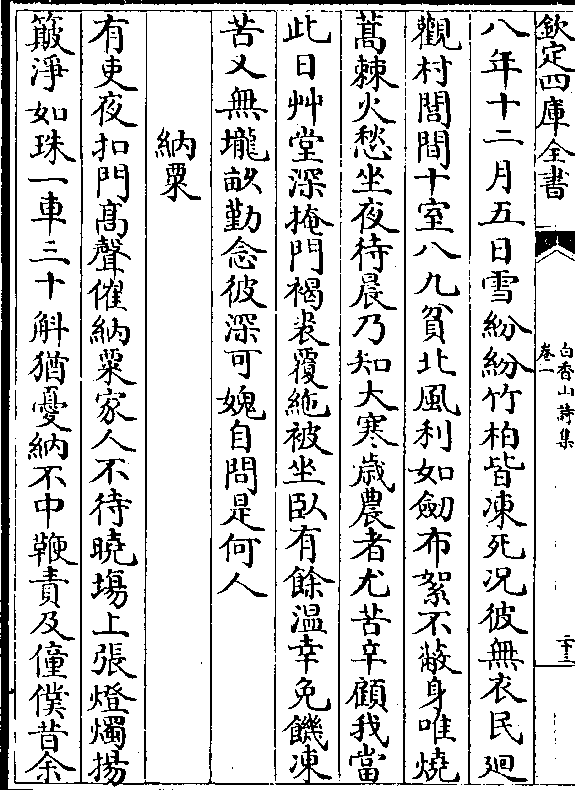 欽定四庫全書
白香山詩集
卷一
二十三
八年十二月五日雪紛紛竹柏皆凍死况彼無衣民廻
觀村閭間十室八九貧北風利如劒布絮不蔽身唯燒
蒿棘火愁坐夜待晨乃知大寒歲農者尤苦辛顧我當
此日艸堂深掩門褐裘覆絁被坐臥有餘温幸免饑凍
苦又無壠畝勤念彼深可媿自問是何人
納粟
有吏夜扣門髙聲催納粟家人不待曉塲上張燈燭揚
簸淨如珠一車三十斛猶憂納不中鞭責及僮僕昔余